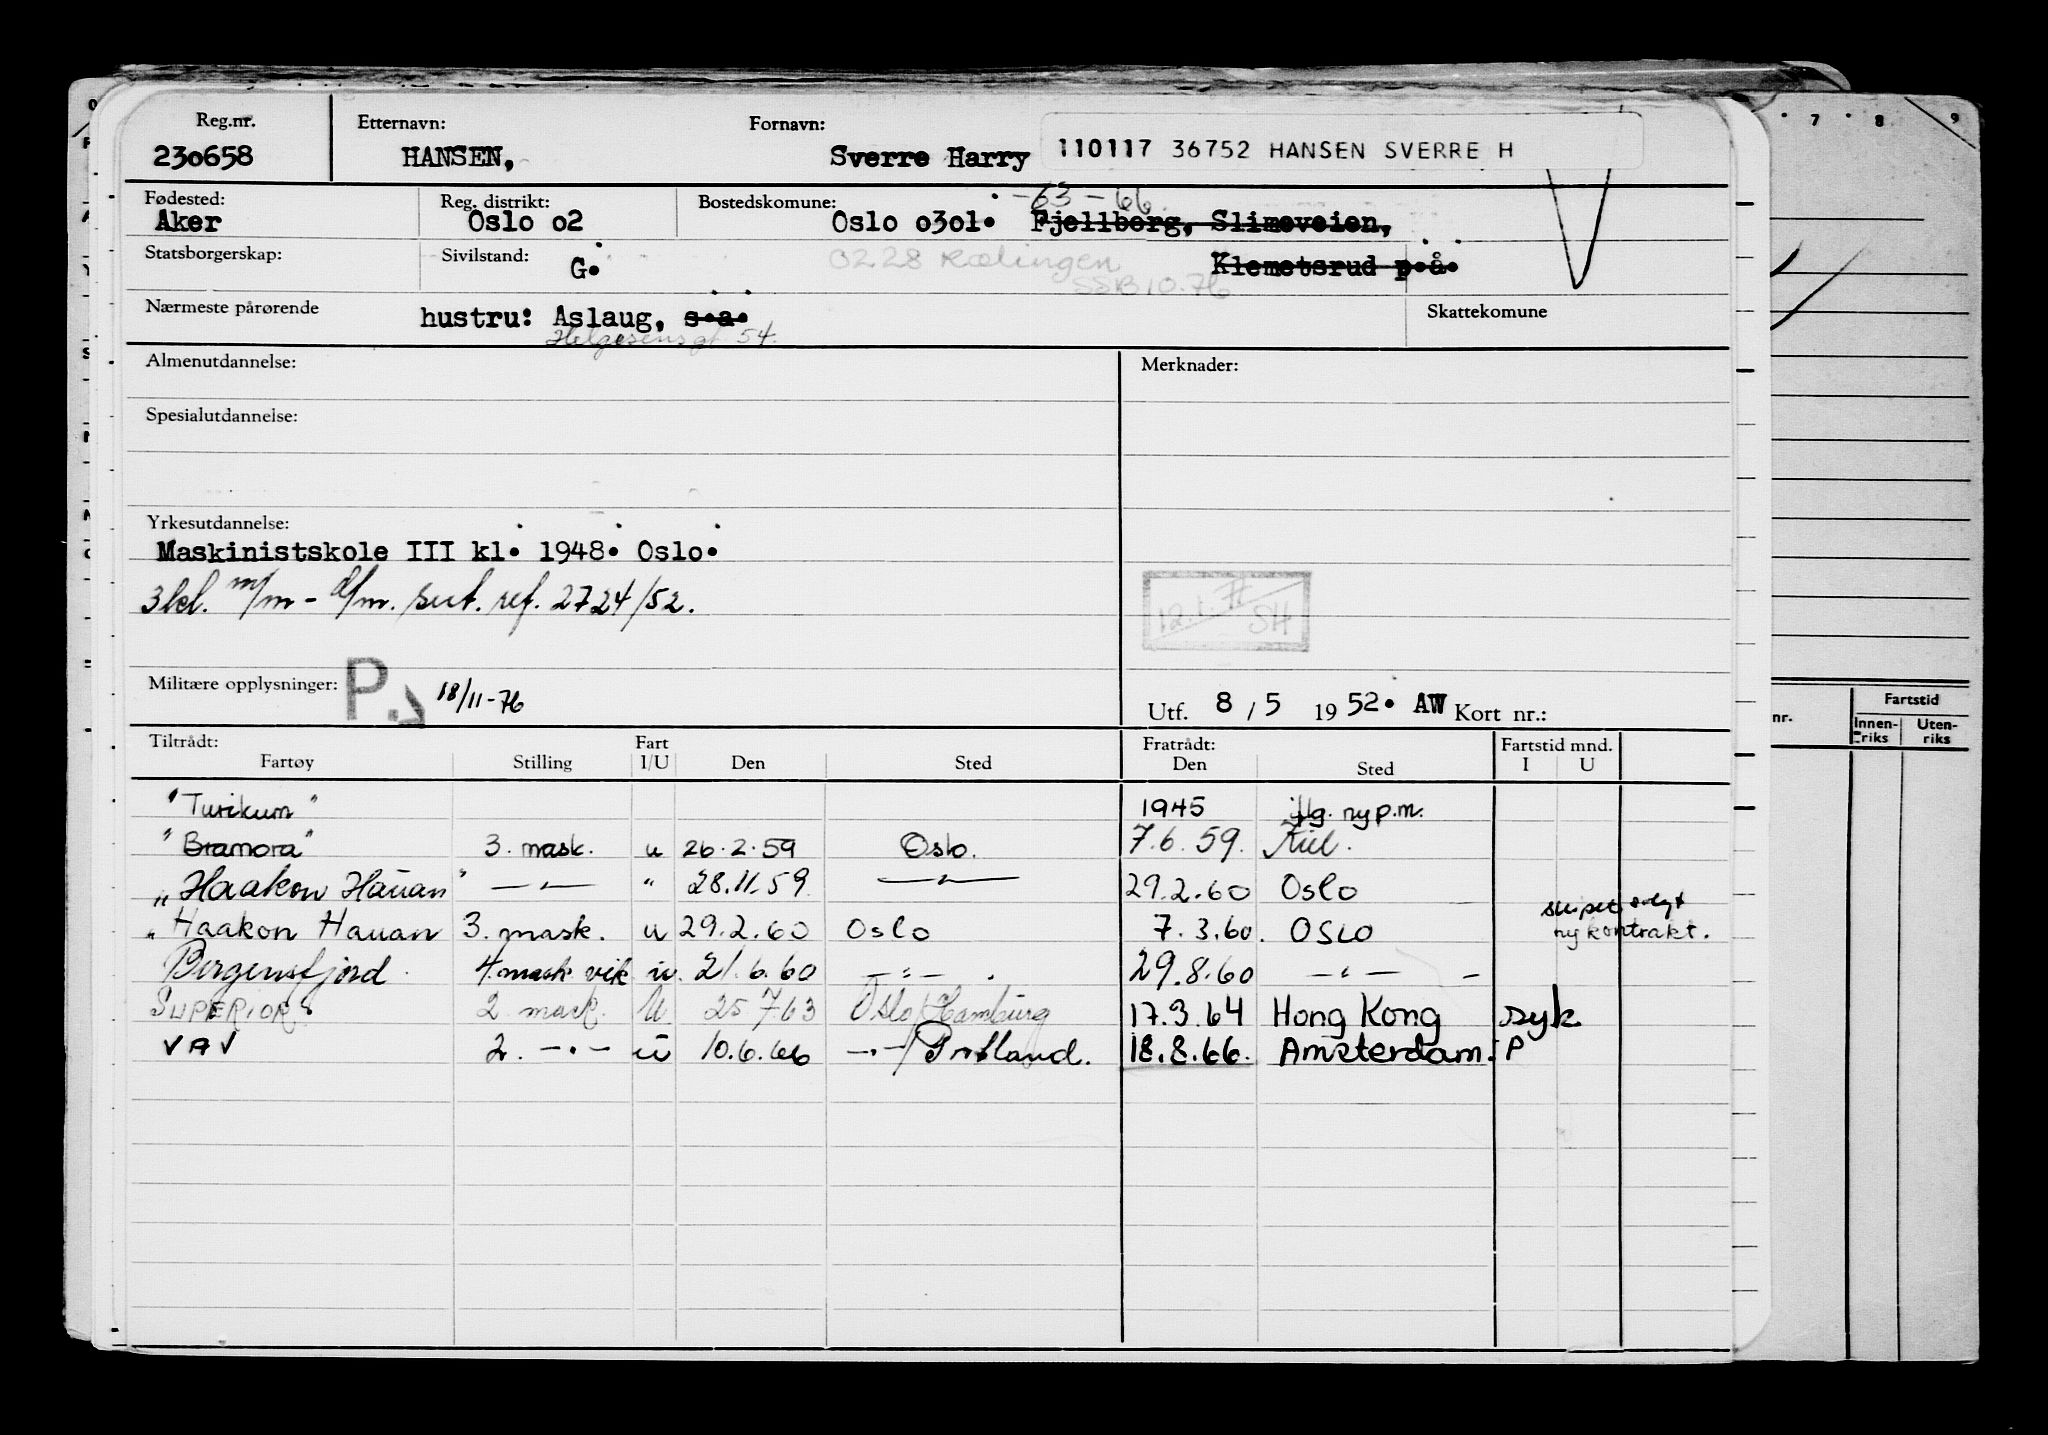 Reg.nr. Etternavn: Fornavn:
230658 HANSEN, Sverre Harry 110117 36752 HANSEN SVERRE H
-63-66.
Fødested: Reg. distrikt: Bostedskomune:
Aker Oslo o2 Oslo o3o1. Fjellborg, Slimeveien,
Statsborgerskap: Sivilstand: G. 0228 Rælingen Klemetsrud p.å.
SSB 10.76
Nærmeste pårørende hustru: Aslaug, s.å. Skattekomune
Helgesensgt 54.
Almenutdannelse: Merknader:
Spesialutdannelse:
Yrkesutdannelse:
Maskinistskole III kl. 1948. Oslo.
3kl. m/m - d/m. sert. ref. 2724/52.
SH
Militære opplysninger: P. 18/11-76
Utf. 8 / 5 1952. AW Kort nr.:
Tiltrådt: Fart Fratrådt: Fartstid mnd.
Fartøy Stilling I/U Den Sted Den Sted I U
"Turikum" 1945 iflg. ny p.m.
"Bramora" 3. mask. u 26.2.59 Oslo. 7.6.59. Kiel.
"Haakon Hauan" —"— " 28.11.59 —"— 29.2.60 Oslo
skipet solgt
"Haakon Hauan 3. mask. u 29.2.60 Oslo 7.3.60. OSLO ny kontrakt.
Bergensfjord 4. mask vik u. 21.6.60 —"— . 29.8.60 —"— -
SUPERIOR 2 mask. U 25 7.63 Oslo/Hamburg 17.3.64 Hong Kong syk
VAV 2. —"— u 10.6.66 —"—/Portland. 18.8.66. Amsterdam. P
7 8 9
nr. Fartstid
Innen-riks Uten-riks